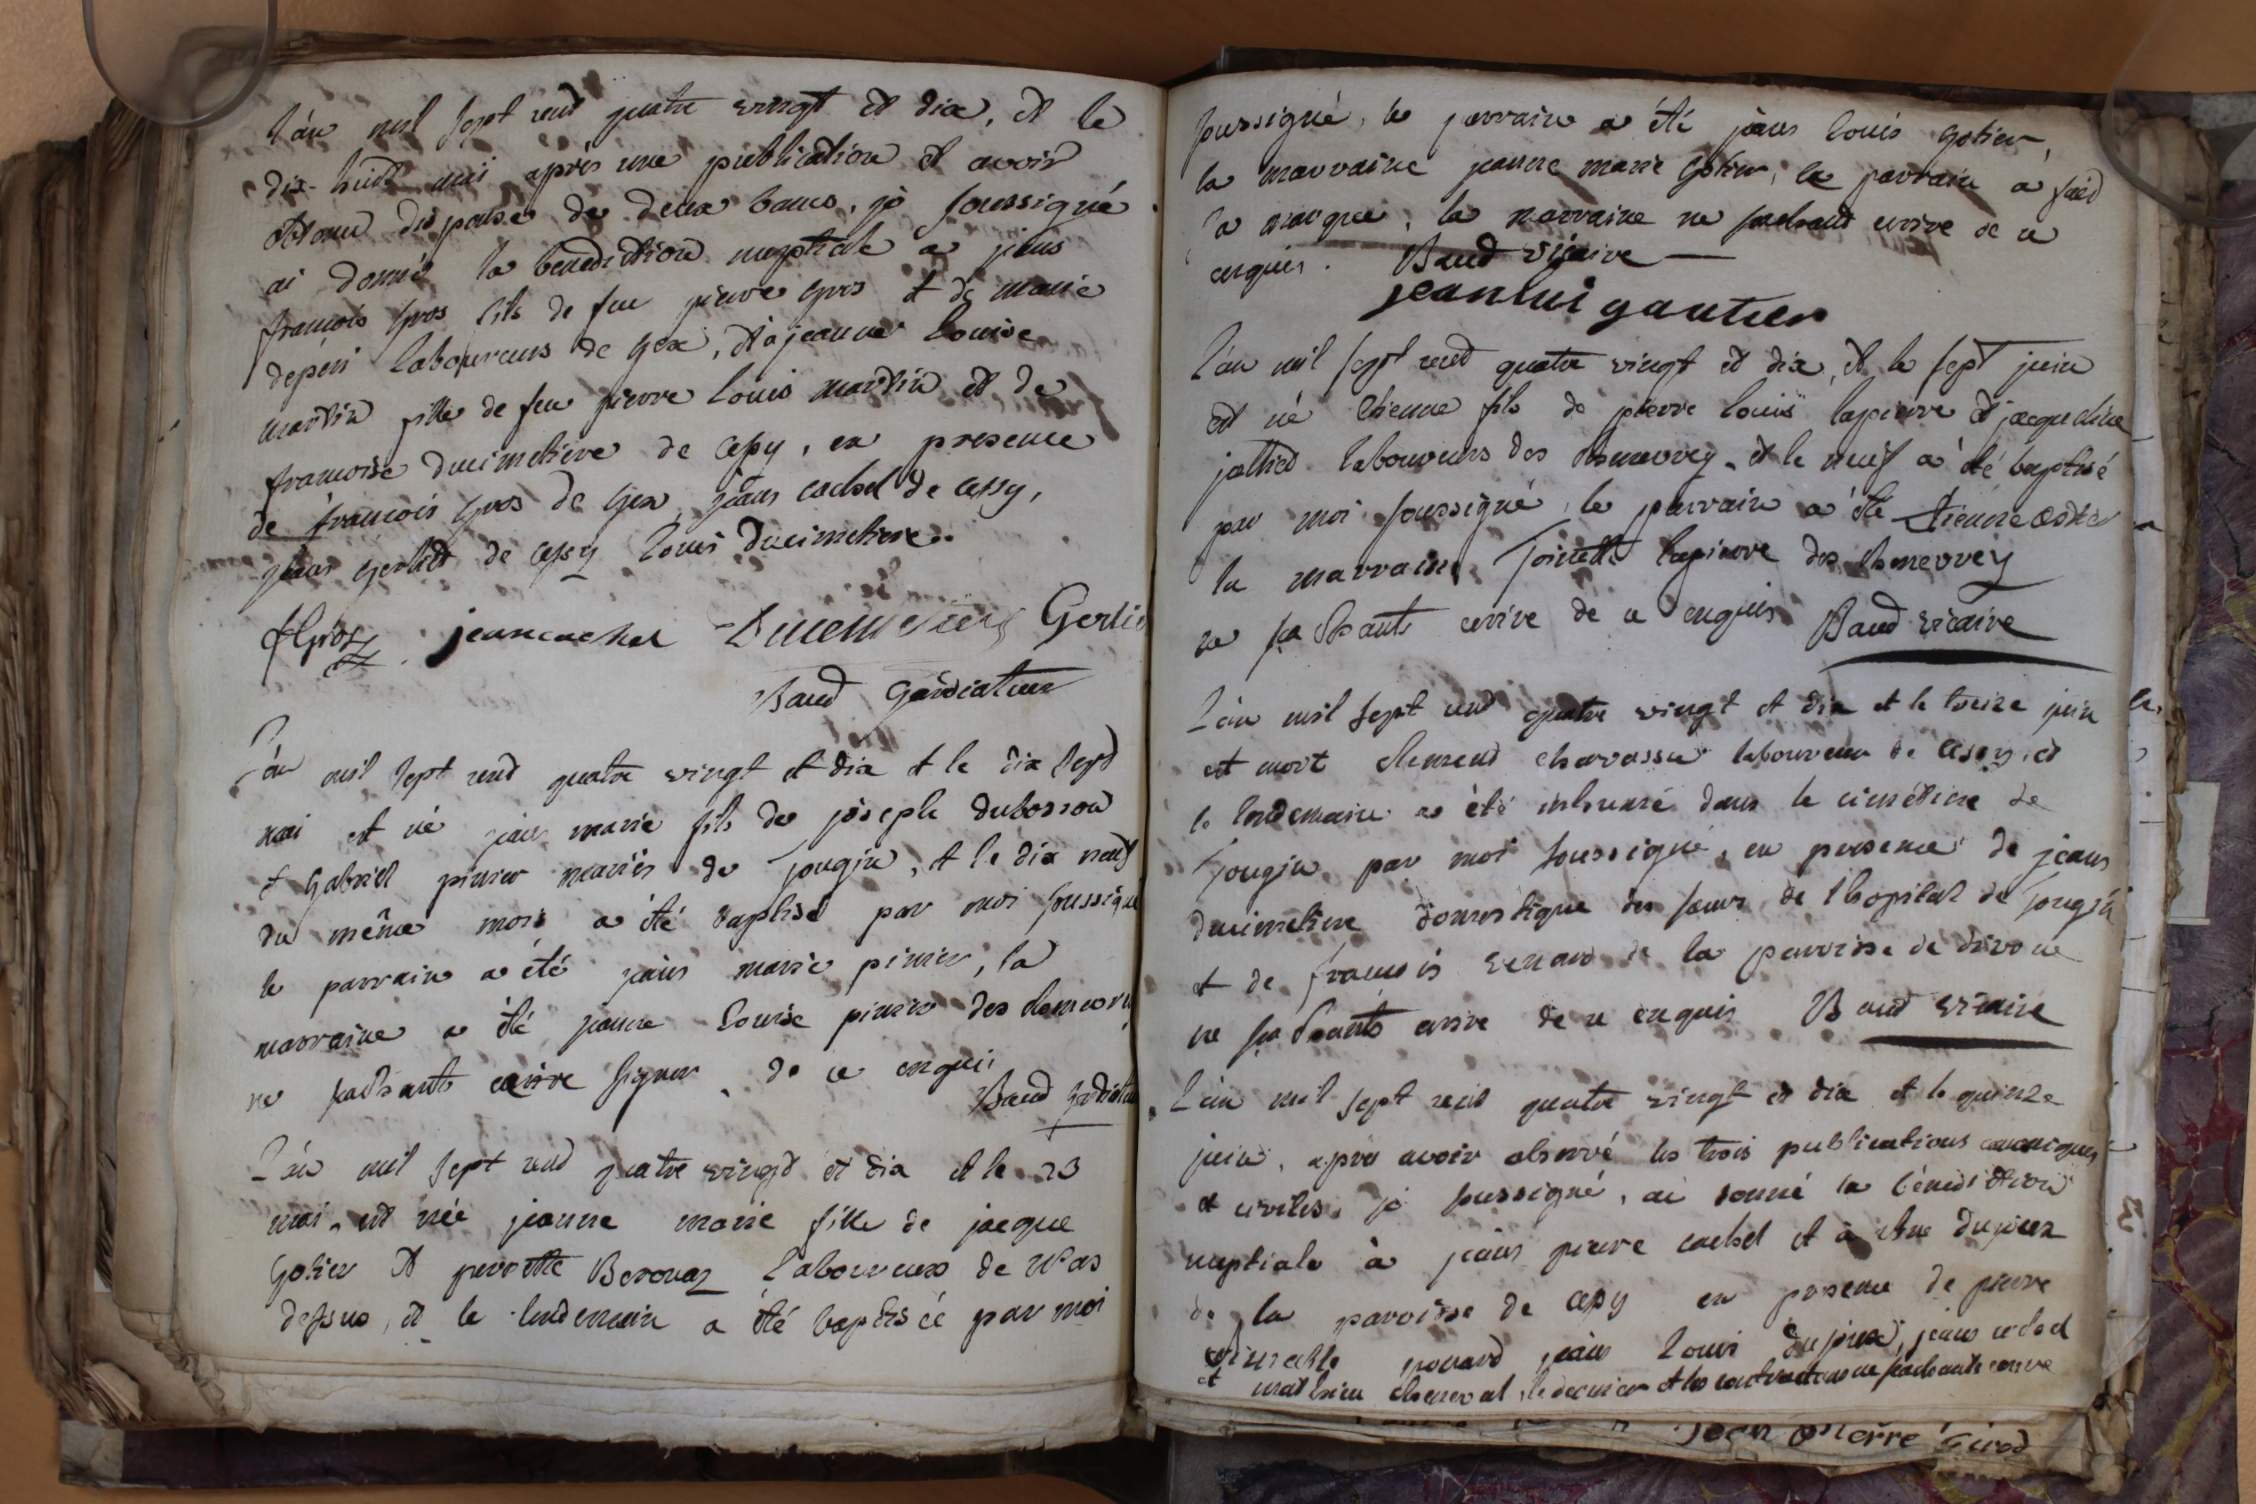 L'an mil sept cent quatre vingt et dix, et le
dix-huit mai après une publication et avoir
obtenu dispense de deux bancs, je soussigné
ai donné la bénédiction nuptiale a jean
françois gros fils de feu pierre gros et de marie
depéri laboureurs de Gex, et à jeanne Louise
martin fille de feu pierre Louis martin et de
françoise ducimetière de Cessy, en presence
de françois gros de Gex, jean cachet de cessy,
jean gerlet de Cessy Louis ducimetiere.
fGros jeancachet Ducimetiere
Baud Gardiateur
L'an mil sept cent quatre vingt et dix et le dix sept
mai est né jean marie fils de joseph dubosson
et Gabriel pinier mariés de Tougin, et le dix neuf
du même mois a été baptisé par moi soussigné
le parrain a été jean marie pinier, la
marraine a été jeanne Louise pinier des
ne sachants ecrire signer, de ce enquis
Baud
L'an mil sept cent quatre vingt et dix et le 23
mai, est née jeanne marie fille de jacque
Gotier et pernette Berouaz Laboureurs de
dessus, et le lendemain a été baptisée par moi
soussigné, le parrain a été jean Louis gotier,
la marraine jeanne marie Gotier, le parrain a fait
sa marque, la marraine ne sachant ecrire de ce
enquis. Baud vicaire
jeanlui gautier
L'an mil sept cent quatre vingt et dix, et le sept juin
est né Etienne fils de pierre louis lapierre et jacqueline
laboureurs des et le neuf a été baptisé
par moi soussigné, le parrain a été Etienne
la marraine Toinette lapierre des
ne sachants ecrire de ce enquis Baud vicaire
L'an mil sept cent quatre vingt et dix et le treize juin
est mort clement charvassu laboureur de Cessy, et
le lendemain a été inhumé dans le cimétière de
Tougin par moi soussigné, en presence de jean
ducimetiere domestique des soeurs de l'hopital de Tougin
et de françois de la parroisse de divone
ne sachants ecrire de ce enquis Baud vicaire
L'an mil sept cent quatre vingt et dix et le quinze
juin, après avoir observé les trois publications canoniques
et civiles, je soussigné, ai donné la bénédiction
nuptiale à jean pierre cachet et à dupuer
de la paroisse de cessy en presence de pierre
jean Louis jean cachet
et mathieu le dernier et les contractans ne sachants ecrire
Jean Pierre Girod